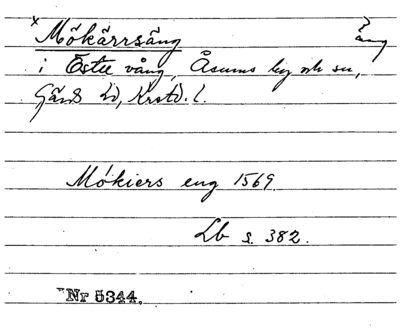 x Mökärrsäng äng
i Östre vång, Åsums by och sn,
Gärds hd, Krstd. l.
Mókiers eng 1569.
Lb s. 382.
Nr 5344.